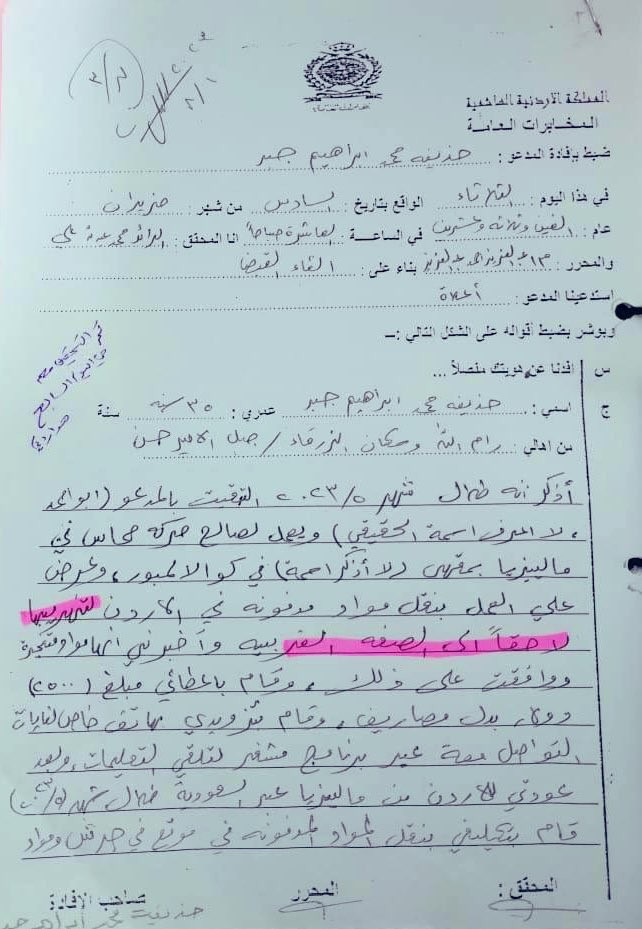 ٢٠٢٣
المملكة الأردنية الهاشمية
المخابرات العامة
ضبط بإفادة المدعو : حذيفه محمد ابراهيم جبر
في هذا اليوم : الثلاثاء الواقع بتاريخ : السادس من شهر : حزيران
عام : الفين وثلاثه وعشرين في الساعة : العاشرة صباحاً انا المحقق : الرائد محمد علي
والمحرر : بناء على : القاء القبض
استدعينا المدعو : أعلاه
وبوشر بضبط أقواله على الشكل التالي :-
س افدنا عن هويتك مفصلاً ...
ج اسمي : حذيفه محمد ابراهيم جبر عمري : ٣٥ سنه سنة
من اهالي : رام الله وسكان الزرقاء / جبل الامير حسن
أذكر انه خلال شهر ٢٠٢٣/٥ التقيت بالمدعو (ابو احمد
، لا اعرف اسمة الحقيقي) ويعمل لصالح حركه حماس في
ماليزيا بمقهى (لا أذكر اسمة) في كوالالمبور، وعرض
علي العمل بنقل مواد مدفونه في الاردن لتهريبها
لاحقاً الى الضفه الغربيه وأخبرني انها مواد متفجرة
ووافقت على ذلك ، وقام باعطائي مبلغ (٢٥٠٠)
دولار بدل مصاريف، وقام بتزويدي بهاتف خاص لغايات
التواصل معة عبر برنامج مشفر لتلقي التعليمات، وبعد
عودتي للاردن من ماليزيا عبر السعودية خلال شهر
قام بتكليفي بنقل المواد المدفونه في موقع في ومواد
المحقق : المحرر صاحب الافادة
حذيفة محمد ابراهيم جبر